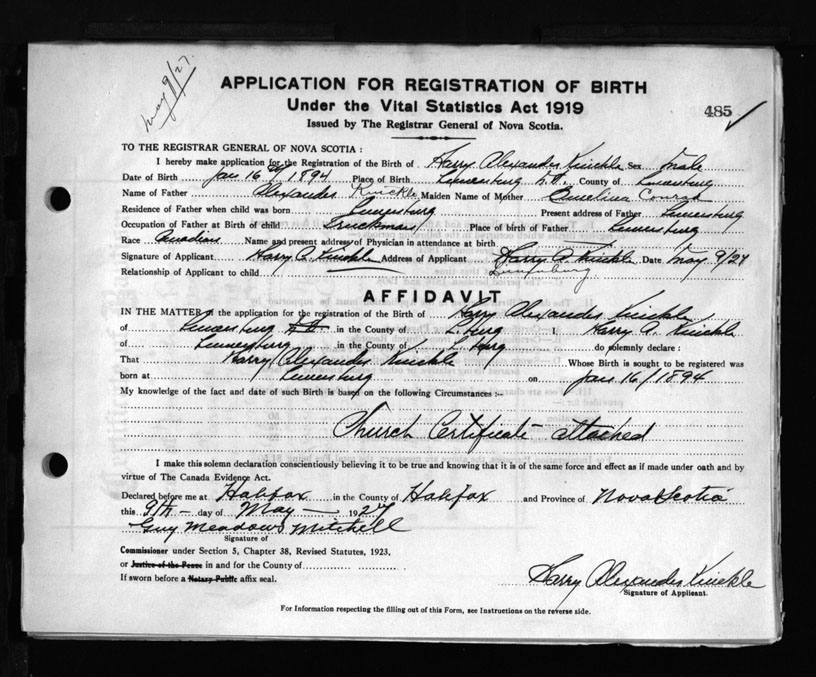 May 9/27.
APPLICATION FOR REGISTRATION OF BIRTH
Under the Vital Statistics Act 1919
485
Issued by The Registrar General of Nova Scotia.
TO THE REGISTRAR GENERAL OF NOVA SCOTIA :
I hereby make application for the Registration of the Birth of Harry Alexander Knickle Sex Male
Date of Birth Jan 16th 1894 Place of Birth Lunenburg N.S. County of Lunenburg
Name of Father Alexander Knickle Maiden Name of Mother Emelina Conrad
Residence of Father when child was born Lunenburg Present address of Father Lunenburg
Occupation of Father at Birth of child Truckman Place of birth of Father Lunenburg
Race Canadian Name and present address of Physician in attendance at birth
Signature of Applicant Harry A. Knickle Address of Applicant Harry A. Knickle Date May 9/27
Relationship of Applicant to child Lunenburg
AFFIDAVIT
IN THE MATTER of the application for the registration of the Birth of Harry Alexander Knickle
of Lunenburg N.S. in the County of L'burg I, Harry A. Knickle
of Lunenburg in the County of L'burg do solemnly declare :
That Harry Alexander Knickle Whose Birth is sought to be registered was
born at Lunenburg on Jan 16/1894
My knowledge of the fact and date of such Birth is based on the following Circumstances :-
Church Certificate attached
I make this solemn declaration conscientiously believing it to be true and knowing that it is of the same force and effect as if made under oath and by
virtue of The Canada Evidence Act.
Declared before me at Halifax in the County of Halifax and Province of Nova Scotia
this 9th day of May 1927
Guy Meadows Mitchell
Signature of
Commissioner under Section 5, Chapter 38, Revised Statutes, 1923.
or Justice of the Peace in and for the County of
If sworn before a Notary Public affix seal.
Harry Alexander Knickle
Signature of Applicant.
For Information respecting the filling out of this Form, see Instructions on the reverse side.